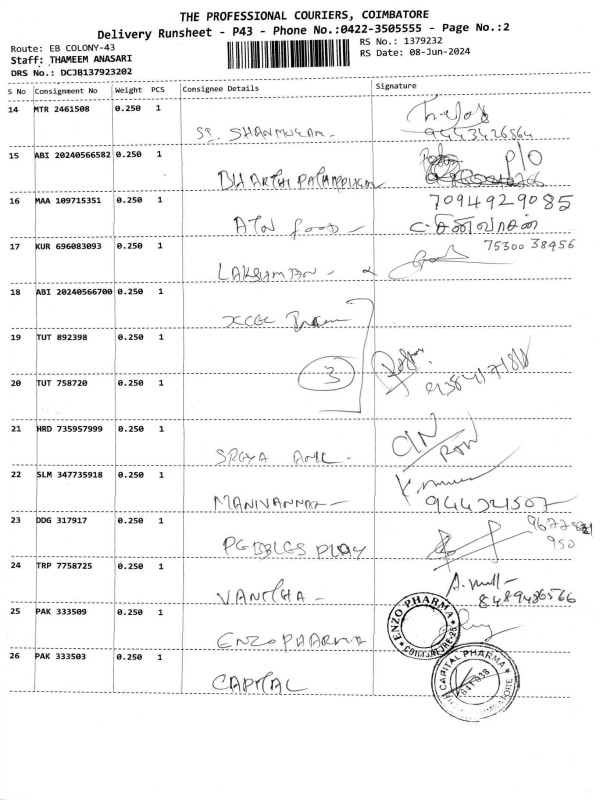 THE PROFESSIONAL COURIERS, COIMBATORE
Delivery Runsheet - P43 - Phone No.:0422-3505555 - Page No.:2
Route: EB COLONY-43
RS No.: 1379232
Staff: THAMEEM ANASARI
RS Date: 08-Jun-2024
DRS No.: DCJB137923202
S No Consignment No Weight PCS Consignee Details Signature
14 MTR 2461508 0.250 1
ST. SHANMUGAM. 9443426564
15 ABI 20240566582 0.250 1
P/O
BHARTHI
16 MAA 109715351 0.250 1
7094929085
ATN food -
17 KUR 696083093 0.250 1
75300 38456
LAKSHAMAN -
18 ABI 20240566700 0.250 1
19 TUT 892398 0.250 1
3
20 TUT 758720 0.250 1
21 HRD 735957999 0.250 1
22 SLM 347735918 0.250 1
MANIVANNAN -
23 DDG 317917 0.250 1
950
PEBBLES PLAY
24 TRP 7758725 0.250 1
8489486566
25 PAK 333509 0.250 1
ENZO PHARMA
ENZO PHARMA
26 PAK 333503 0.250 1
CAPITAL PHARMA
CAPITAL